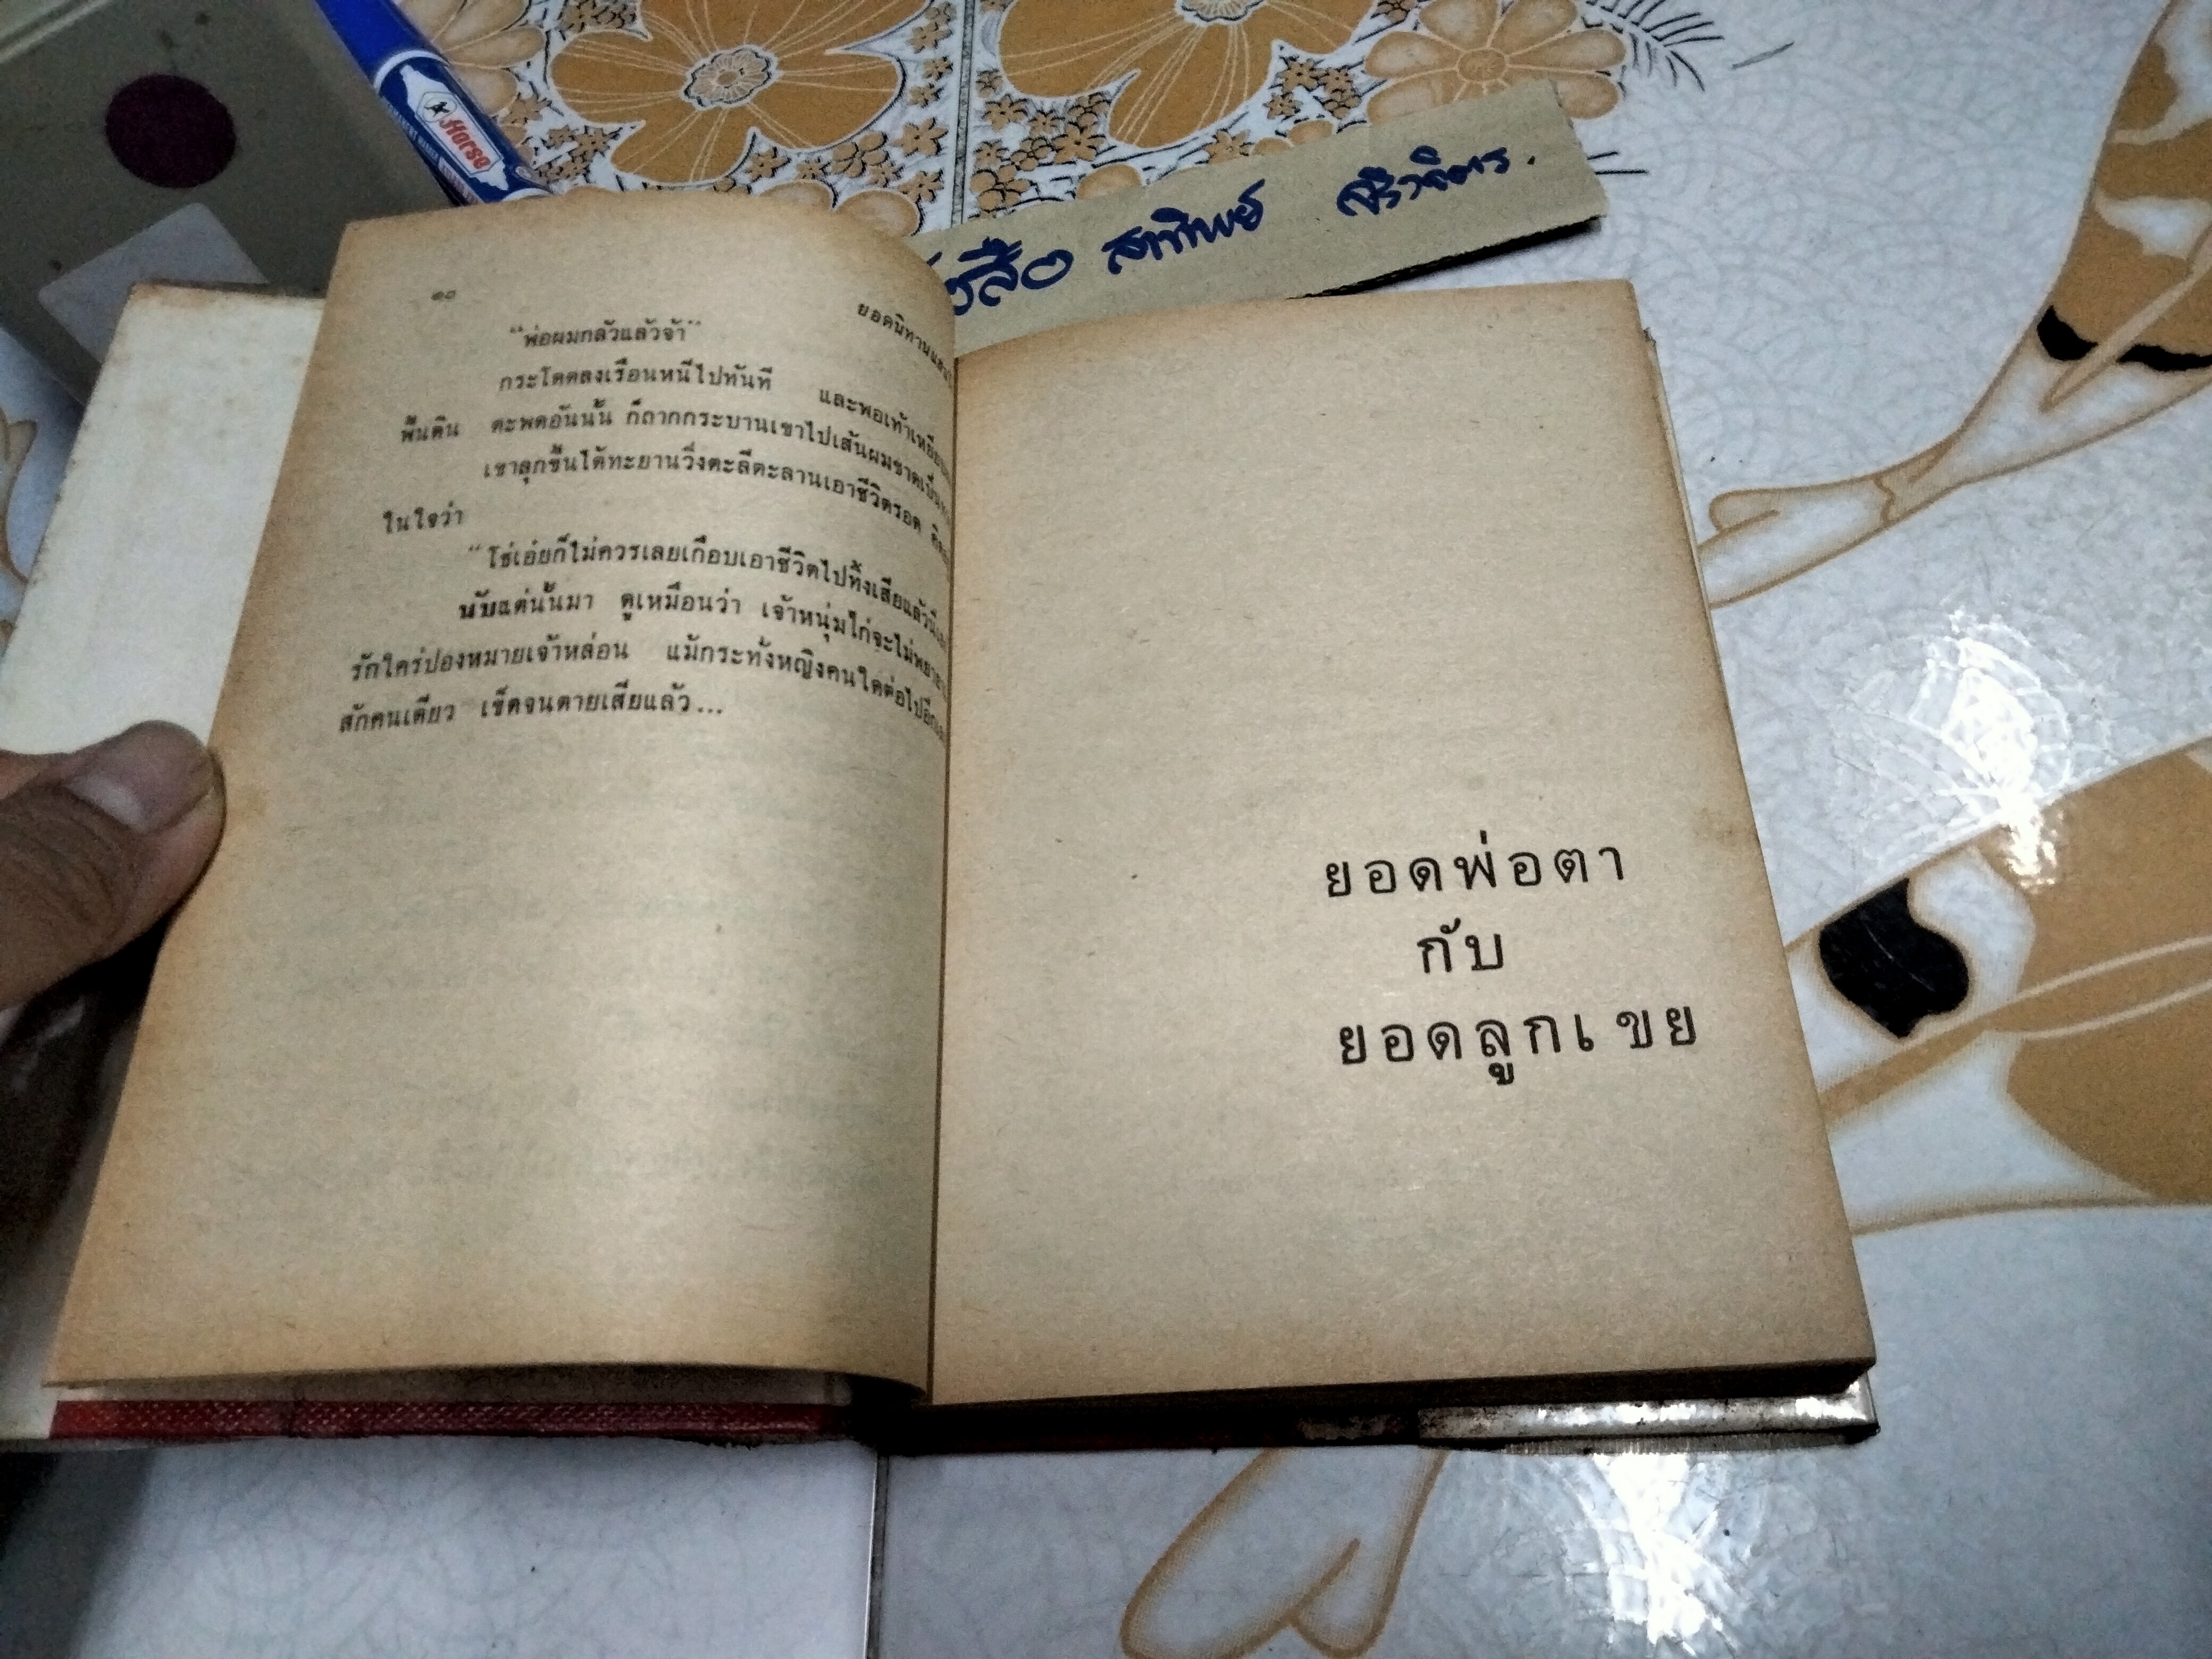 Horse
สาทิพย์
๑๐
ยอดนิทาน
“พ่อผมกลัวแล้วจ้า”
กระโดดลงเรือนหนีไปทันที และพอเท้าเหยียบ
พื้นดิน ตะพดอันนั้น ก็ถากกระบานเขาไปเส้นผมขาดเป็น
เขาลุกขึ้นได้ทะยานวิ่งตะลีตะลานเอาชีวิตรอด
ในใจว่า
“โธ่เอ๋ยก็ไม่ควรเลยเกือบเอาชีวิตไปทิ้งเสียแล้ว
นับแต่นั้นมา ดูเหมือนว่า เจ้าหนุ่มไก่จะไม่
รักใคร่ปองหมายเจ้าหล่อน แม้กระทั่งหญิงคนใดต่อไปอีก
สักคนเดียว เข็ดจนตายเสียแล้ว...
ยอดพ่อตา
กับ
ยอดลูกเขย